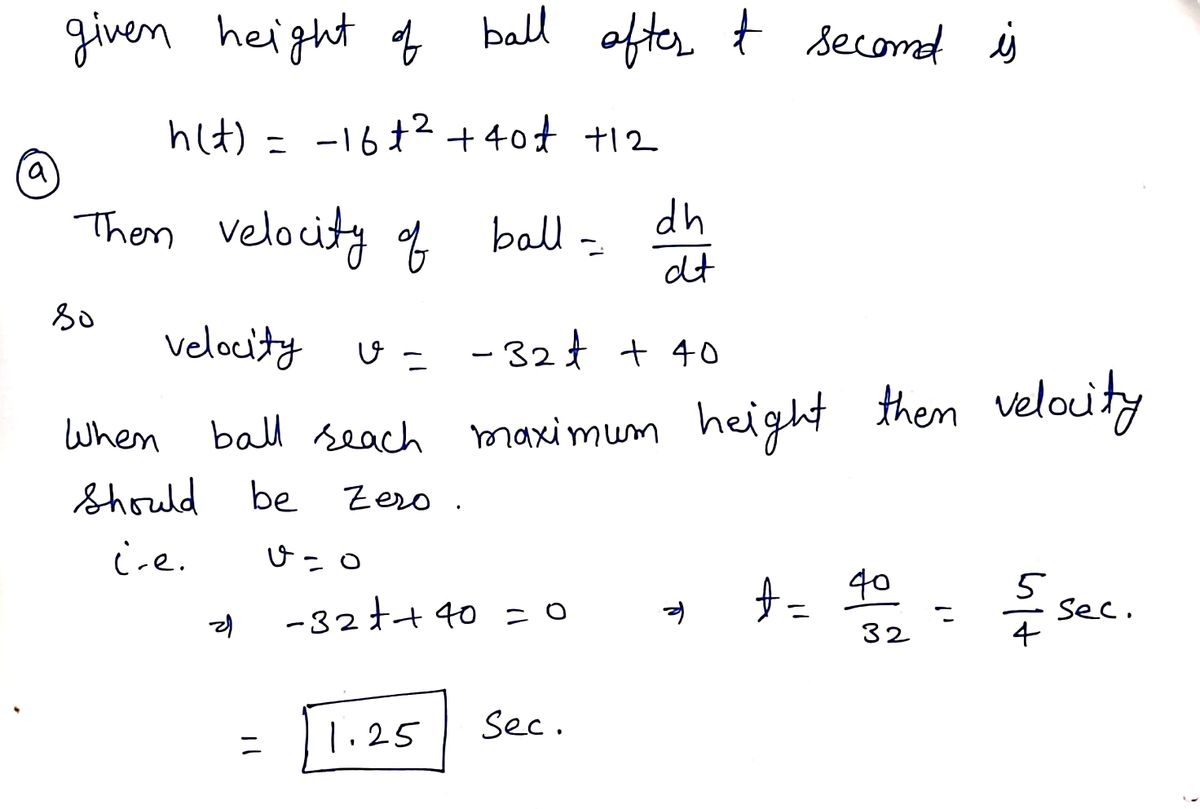 given height of ball after t second is
h(t) = -16t² + 40t +12
(a)
Then velocity of ball = dh/dt
so
velocity v = -32t + 40
When ball reach maximum height then velocity
should be zero.
i.e. v = 0
⇒ -32t + 40 = 0 ⇒ t = 40/32 = 5/4 sec.
= 1.25 sec.